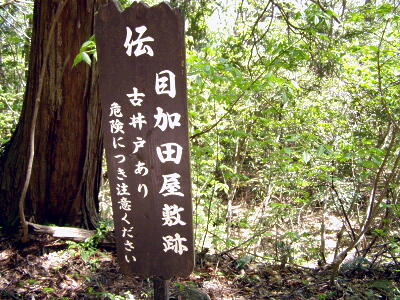 伝
目加田屋敷跡
古井戸あり
危険につき注意ください